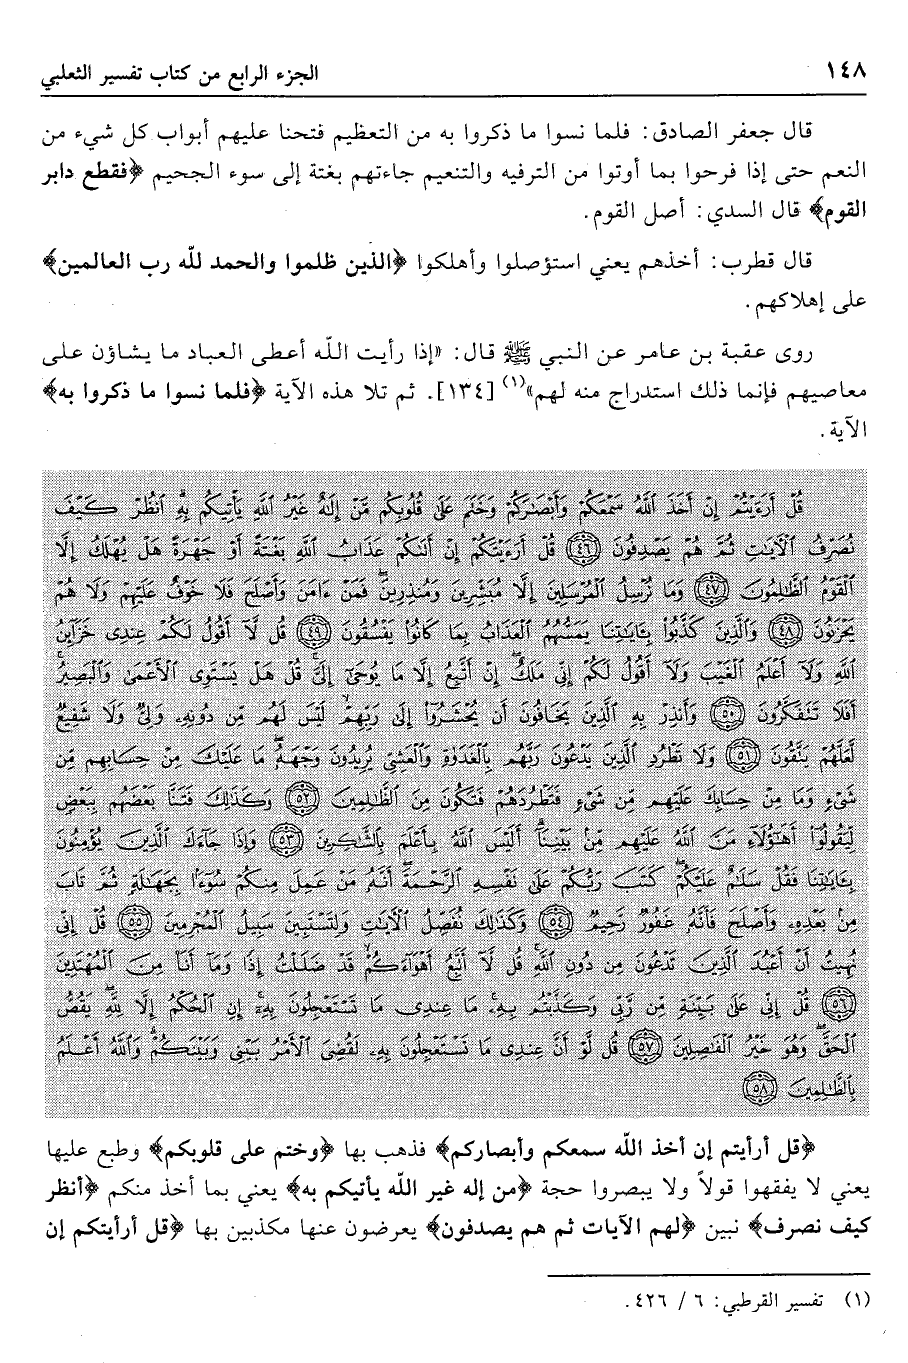 ١٤٨ الجزء الرابع من كتاب تفسير الثعلبي
قال جعفر الصادق: فلما نسوا ما ذكروا به من التعظيم فتحنا عليهم أبواب كل شيء من
النعم حتى إذا فرحوا بما أوتوا من الترفيه والتنعيم جاءتهم بغتة إلى سوء الجحيم ﴿فقطع دابر
القوم﴾ قال السدي: أصل القوم.
قال قطرب: أخذهم يعني استؤصلوا وأهلكوا ﴿الذين ظلموا والحمد لله رب العالمين﴾
على إهلاكهم.
روى عقبة بن عامر عن النبي ﷺ قال: «إذا رأيت الله أعطى العباد ما يشاؤن على
معاصيهم فإنما ذلك استدراج منه لهم»(١) [١٣٤]. ثم تلا هذه الآية ﴿فلما نسوا ما ذكروا به﴾
الآية.
قُلْ أَرَءَيْتُمْ إِنْ أَخَذَ اللَّهُ سَمْعَكُمْ وَأَبْصَٰرَكُمْ وَخَتَمَ عَلَىٰ قُلُوبِكُم مَّنْ إِلَٰهٌ غَيْرُ اللَّهِ يَأْتِيكُم بِهِ ۗ انظُرْ كَيْفَ
نُصَرِّفُ الْآيَٰتِ ثُمَّ هُمْ يَصْدِفُونَ ﴿٤٦﴾ قُلْ أَرَءَيْتَكُمْ إِنْ أَتَىٰكُمْ عَذَابُ اللَّهِ بَغْتَةً أَوْ جَهْرَةً هَلْ يُهْلَكُ إِلَّا
الْقَوْمُ الظَّٰلِمُونَ ﴿٤٧﴾ وَمَا نُرْسِلُ الْمُرْسَلِينَ إِلَّا مُبَشِّرِينَ وَمُنذِرِينَ ۖ فَمَنْ ءَامَنَ وَأَصْلَحَ فَلَا خَوْفٌ عَلَيْهِمْ وَلَا هُمْ
يَحْزَنُونَ ﴿٤٨﴾ وَالَّذِينَ كَذَّبُوا بِـَٔايَٰتِنَا يَمَسُّهُمُ الْعَذَابُ بِمَا كَانُوا يَفْسُقُونَ ﴿٤٩﴾ قُل لَّا أَقُولُ لَكُمْ عِندِى خَزَآئِنُ
اللَّهِ وَلَا أَعْلَمُ الْغَيْبَ وَلَا أَقُولُ لَكُمْ إِنِّى مَلَكٌ ۖ إِنْ أَتَّبِعُ إِلَّا مَا يُوحَىٰ إِلَىَّ ۚ قُلْ هَلْ يَسْتَوِى الْأَعْمَىٰ وَالْبَصِيرُ ۚ
أَفَلَا تَتَفَكَّرُونَ ﴿٥٠﴾ وَأَنذِرْ بِهِ الَّذِينَ يَخَافُونَ أَن يُحْشَرُوا إِلَىٰ رَبِّهِمْ ۙ لَيْسَ لَهُم مِّن دُونِهِ وَلِىٌّ وَلَا شَفِيعٌ
لَّعَلَّهُمْ يَتَّقُونَ ﴿٥١﴾ وَلَا تَطْرُدِ الَّذِينَ يَدْعُونَ رَبَّهُم بِالْغَدَوٰةِ وَالْعَشِىِّ يُرِيدُونَ وَجْهَهُ ۖ مَا عَلَيْكَ مِنْ حِسَابِهِم مِّن
شَىْءٍ وَمَا مِنْ حِسَابِكَ عَلَيْهِم مِّن شَىْءٍ فَتَطْرُدَهُمْ فَتَكُونَ مِنَ الظَّٰلِمِينَ ﴿٥٢﴾ وَكَذَٰلِكَ فَتَنَّا بَعْضَهُم بِبَعْضٍ
لِّيَقُولُوا أَهَٰٓؤُلَآءِ مَنَّ اللَّهُ عَلَيْهِم مِّنۢ بَيْنِنَا ۗ أَلَيْسَ اللَّهُ بِأَعْلَمَ بِالشَّٰكِرِينَ ﴿٥٣﴾ وَإِذَا جَآءَكَ الَّذِينَ يُؤْمِنُونَ
بِـَٔايَٰتِنَا فَقُلْ سَلَٰمٌ عَلَيْكُمْ ۖ كَتَبَ رَبُّكُمْ عَلَىٰ نَفْسِهِ الرَّحْمَةَ ۖ أَنَّهُ مَنْ عَمِلَ مِنكُمْ سُوٓءًا بِجَهَٰلَةٍ ثُمَّ تَابَ
مِنۢ بَعْدِهِ وَأَصْلَحَ فَأَنَّهُ غَفُورٌ رَّحِيمٌ ﴿٥٤﴾ وَكَذَٰلِكَ نُفَصِّلُ الْآيَٰتِ وَلِتَسْتَبِينَ سَبِيلُ الْمُجْرِمِينَ ﴿٥٥﴾ قُلْ إِنِّى
نُهِيتُ أَنْ أَعْبُدَ الَّذِينَ تَدْعُونَ مِن دُونِ اللَّهِ ۚ قُل لَّا أَتَّبِعُ أَهْوَآءَكُمْ ۙ قَدْ ضَلَلْتُ إِذًا وَمَا أَنَا مِنَ الْمُهْتَدِينَ
﴿٥٦﴾ قُلْ إِنِّى عَلَىٰ بَيِّنَةٍ مِّن رَّبِّى وَكَذَّبْتُم بِهِ ۚ مَا عِندِى مَا تَسْتَعْجِلُونَ بِهِ ۚ إِنِ الْحُكْمُ إِلَّا لِلَّهِ ۖ يَقُصُّ
الْحَقَّ ۖ وَهُوَ خَيْرُ الْفَٰصِلِينَ ﴿٥٧﴾ قُل لَّوْ أَنَّ عِندِى مَا تَسْتَعْجِلُونَ بِهِ لَقُضِىَ الْأَمْرُ بَيْنِى وَبَيْنَكُمْ ۗ وَاللَّهُ أَعْلَمُ
بِالظَّٰلِمِينَ ﴿٥٨﴾
﴿قل أرأيتم إن أخذ الله سمعكم وأبصاركم﴾ فذهب بها ﴿وختم على قلوبكم﴾ وطبع عليها
يعني لا يفقهوا قولاً ولا يبصروا حجة ﴿من إله غير الله يأتيكم به﴾ يعني بما أخذ منكم ﴿أنظر
كيف نصرف﴾ نبين ﴿لهم الآيات ثم هم يصدفون﴾ يعرضون عنها مكذبين بها ﴿قل أرأيتكم إن
(١) تفسير القرطبي: ٦ / ٤٢٦.